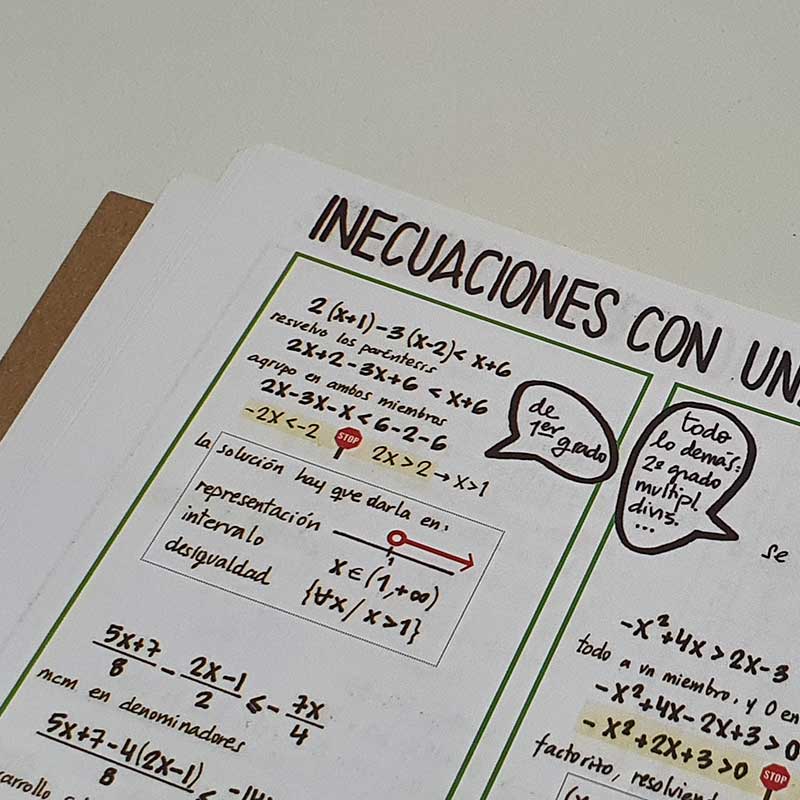 INECUACIONES CON UN
2(x+1)-3(x-2)< x+6
resuelvo los paréntesis
2x+2-3x+6 < x+6
agrupo en ambos miembros
2x-3x-x<6-2-6
-2x<-2 STOP 2x>2→x>1
de
1er
grado
la solución hay que darla en:
representación
1
intervalo x∈(1,+∞)
desigualdad {∀x/x>1}
5x+7/8 - 2x-1/2 ≤ - 7x/4
mcm en denominadores
5x+7-4(2x-1)/8 ≤ -14x
todo
lo demás:
2º grado
multipl.
divis.
...
se
-x²+4x>2x-3
todo a un miembro, y 0 en
-x²+4x-2x+3>0
-x²+2x+3>0 STOP
factorizo,